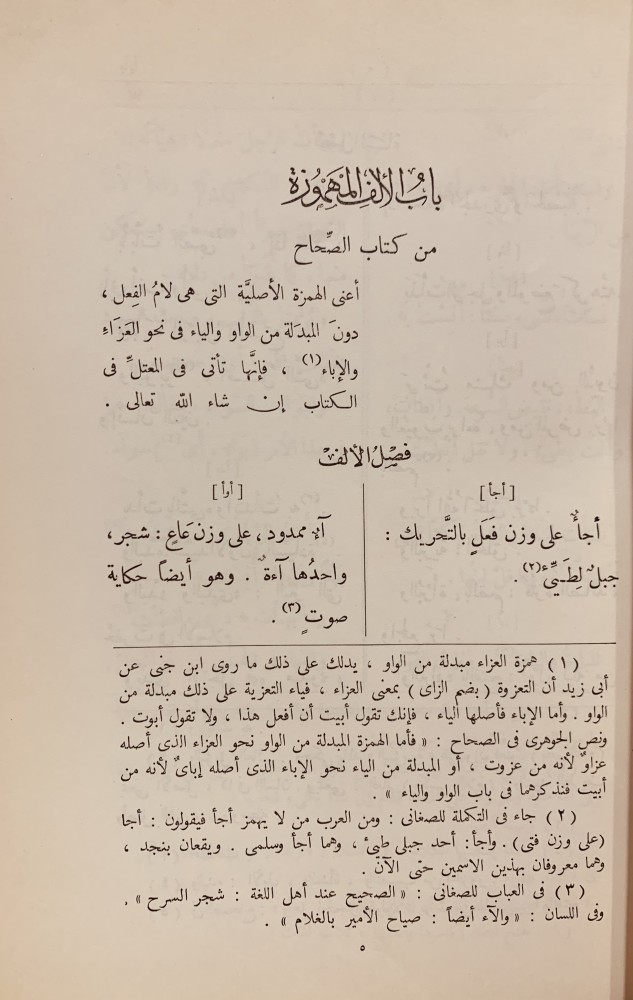 بابُ الألِفِ المَهْمُوزة
من كتاب الصِّحاح
أعنى الهمزة الأصليَّة التى هى لامُ الفِعل ،
دونَ المبدَلة من الواو والياء فى نحو العَزَاءِ
والإباء(١) ، فإنَّها تأتى فى المعتلِّ فى
الكتاب إن شاء الله تعالى .
فصْلُ الألِف
[ أجأ ]
أجأٌ على وزن فَعَلٍ بالتَّحريك :
جبلٌ لِطَيِّءٍ(٢) .
[ أوأ ]
آءٌ ممدود ، على وزن عَاعٍ : شجر ،
واحدُها آءةٌ . وهو أيضاً حكاية
صوتٍ(٣) .
(١) همزة العزاء مبدلة من الواو ، يدلك على ذلك ما روى ابن جنى عن
أبى زيد أن التعزوة ( بضم الزاى ) بمعنى العزاء ، فياء التعزية على ذلك مبدلة من
الواو . وأما الإباء فأصلها الياء ، فإنك تقول أبيت أن أفعل هذا ، ولا تقول أبوت .
ونص الجوهرى فى الصحاح : « فأما الهمزة المبدلة من الواو نحو العزاء الذى أصله
عزاوٌ لأنه من عزوت ، أو المبدلة من الياء نحو الإباء الذى أصله إباىٌ لأنه من
أبيت فنذكرهما فى باب الواو والياء » .
(٢) جاء فى التكملة للصغانى : ومن العرب من لا يهمز أجأ فيقولون : أجا
(على وزن فتى) . وأجأ : أحد جبلى طيئ ، وهما أجأ وسلمى . ويقعان بنجد ،
وهما معروفان بهذين الاسمين حتى الآن .
(٣) فى العباب للصغانى : « الصحيح عند أهل اللغة : شجر السرح » .
وفى اللسان : « والآء أيضاً : صياح الأمير بالغلام » .
٥